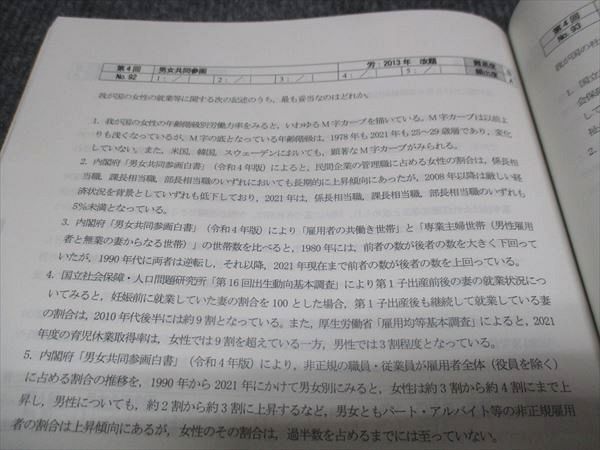 第4回 男女共同参画 労:2013年 改題 難易度
No. 92 1: / 2: / 3: / 4: / 5: / 頻出度 A
我が国の女性の就業等に関する次の記述のうち、最も妥当なのはどれか。
1. 我が国の女性の年齢階級別労働力率をみると、いわゆるM字カーブを描いている。M字カーブは以前よ
りも浅くなっているが、M字の底となっている年齢階級は、1978年も2021年も25~29歳層であり、変化
していない。また、米国、韓国、スウェーデンにおいても、顕著なM字カーブがみられる。
2. 内閣府「男女共同参画白書」(令和4年版)によると、民間企業の管理職に占める女性の割合は、係長相
当職、課長相当職、部長相当職のいずれにおいても長期的に上昇傾向にあったが、2008年以降は厳しい経
済状況を背景としていずれも低下しており、2021年は、係長相当職、課長相当職、部長相当職のいずれも
5%未満となっている。
3. 内閣府「男女共同参画白書」(令和4年版)により「雇用者の共働き世帯」と「専業主婦世帯(男性雇用
者と無業の妻からなる世帯)」の世帯数を比べると、1980年には、前者の数が後者の数を大きく下回って
いたが、1990年代に両者は逆転し、それ以降、2021年現在まで前者の数が後者の数を上回っている。
4. 国立社会保障・人口問題研究所「第16回出生動向基本調査」により第1子出産前後の妻の就業状況につ
いてみると、妊娠前に就業していた妻の割合を100とした場合、第1子出産後も継続して就業している妻
の割合は、2010年代後半には約9割となっている。また、厚生労働省「雇用均等基本調査」によると、2021
年度の育児休業取得率は、女性では9割を超えている一方、男性では3割程度となっている。
5. 内閣府「男女共同参画白書」(令和4年版)により、非正規の職員・従業員が雇用者全体(役員を除く)
に占める割合の推移を、1990年から2021年にかけて男女別にみると、女性は約3割から約4割にまで上
昇し、男性についても、約2割から約3割に上昇するなど、男女ともパート・アルバイト等の非正規雇用
者の割合は上昇傾向にあるが、女性のその割合は、過半数を占めるまでには至っていない。
第4回
No. 93
我が国の社
1. 国立
会保障